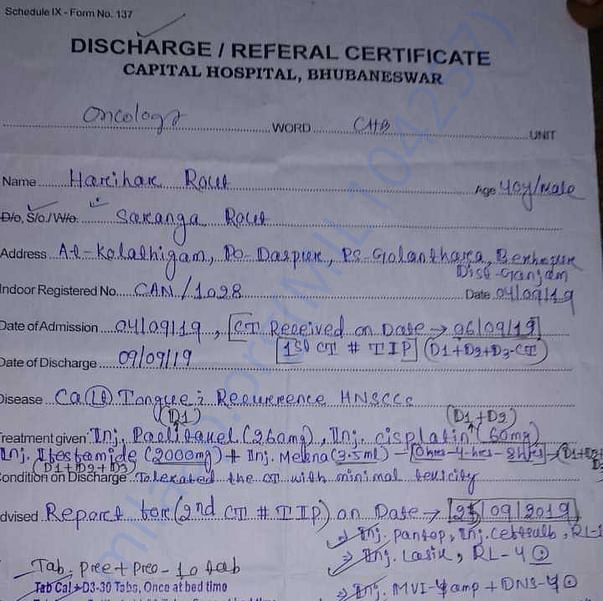 Schedule IX - Form No. 137
DISCHARGE / REFERAL CERTIFICATE
CAPITAL HOSPITAL, BHUBANESWAR
Oncology WORD CHB UNIT
Name Harihar Rout Age 40y/Male
D/o, S/o./W/o. Saranga Rout
Address At-Kolathigam, Po-Daspur, Ps-Golanthara, Berhepur
Dist-Ganjam
Indoor Registered No. CAN/1028 Date 04/09/19
Date of Admission 04/09/19, CT Received on Date → 06/09/19
1st CT # TIP (D1+D2+D3-CT)
Date of Discharge 09/09/19
Disease Ca (Lt) Tongue c̄ Recurrence HNSCCC
(D1) (D1+D2)
Treatment given Inj. Paclitaxel (260mg), Inj. cisplatin (60mg)
Inj. Ifestamide (2000mg) + Inj. Mesna (3.5ml) - 0hrs-4hrs-8hrs
(D1+D2+D3)
Condition on Discharge Tolerated the CT with minimal toxicity
Advised Report for (2nd CT # TIP) on Date → 25/09/2019
Inj. Pantop, Inj. RL-1
Tab. Pree + Preo - 10 tab Inj. Lasix, RL-4
Tab Cal + D3-30 Tabs, Once at bed time Inj. MVI-4amp + DNS-4
milaap.org(MIL104237)